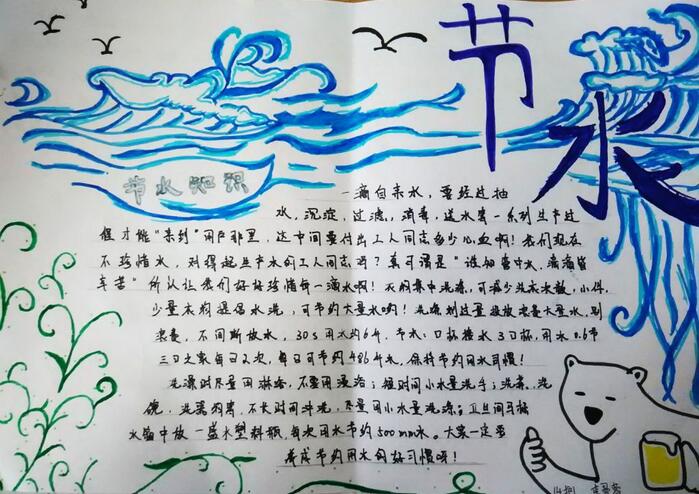 节水
节水知识
一滴自来水，要经过抽
水，沉淀，过滤，消毒，送水等一系列生产过
程才能“来到”用户那里，这中间要付出工人同志多少心血啊！我们现在
不珍惜水，对得起生产水的工人同志吗？真可谓是“谁知壶中水，滴滴皆
辛苦”所以让我们好好珍惜每一滴水啊！衣物集中洗涤，可减少洗衣次数，小件，
少量衣物提倡手洗，可节约大量水哟！洗涤剂过量投放浪费大量水，刷
浪费，不间断放水，30s用水约6升，节水：口杯接水3口杯，用水0.6升
三口之家每日2次，每月可节约486升水，保持节约用水习惯！
洗澡时尽量用淋浴，不要用浸浴；短时间小水量洗手；洗菜、洗
碗，洗莱时，不长时间冲洗，尽量用小水量洗涤；卫生间马桶
水箱中放一盛水塑料瓶，每次用水节约500mm水。大家一定要
养成节约用水的好习惯呀！